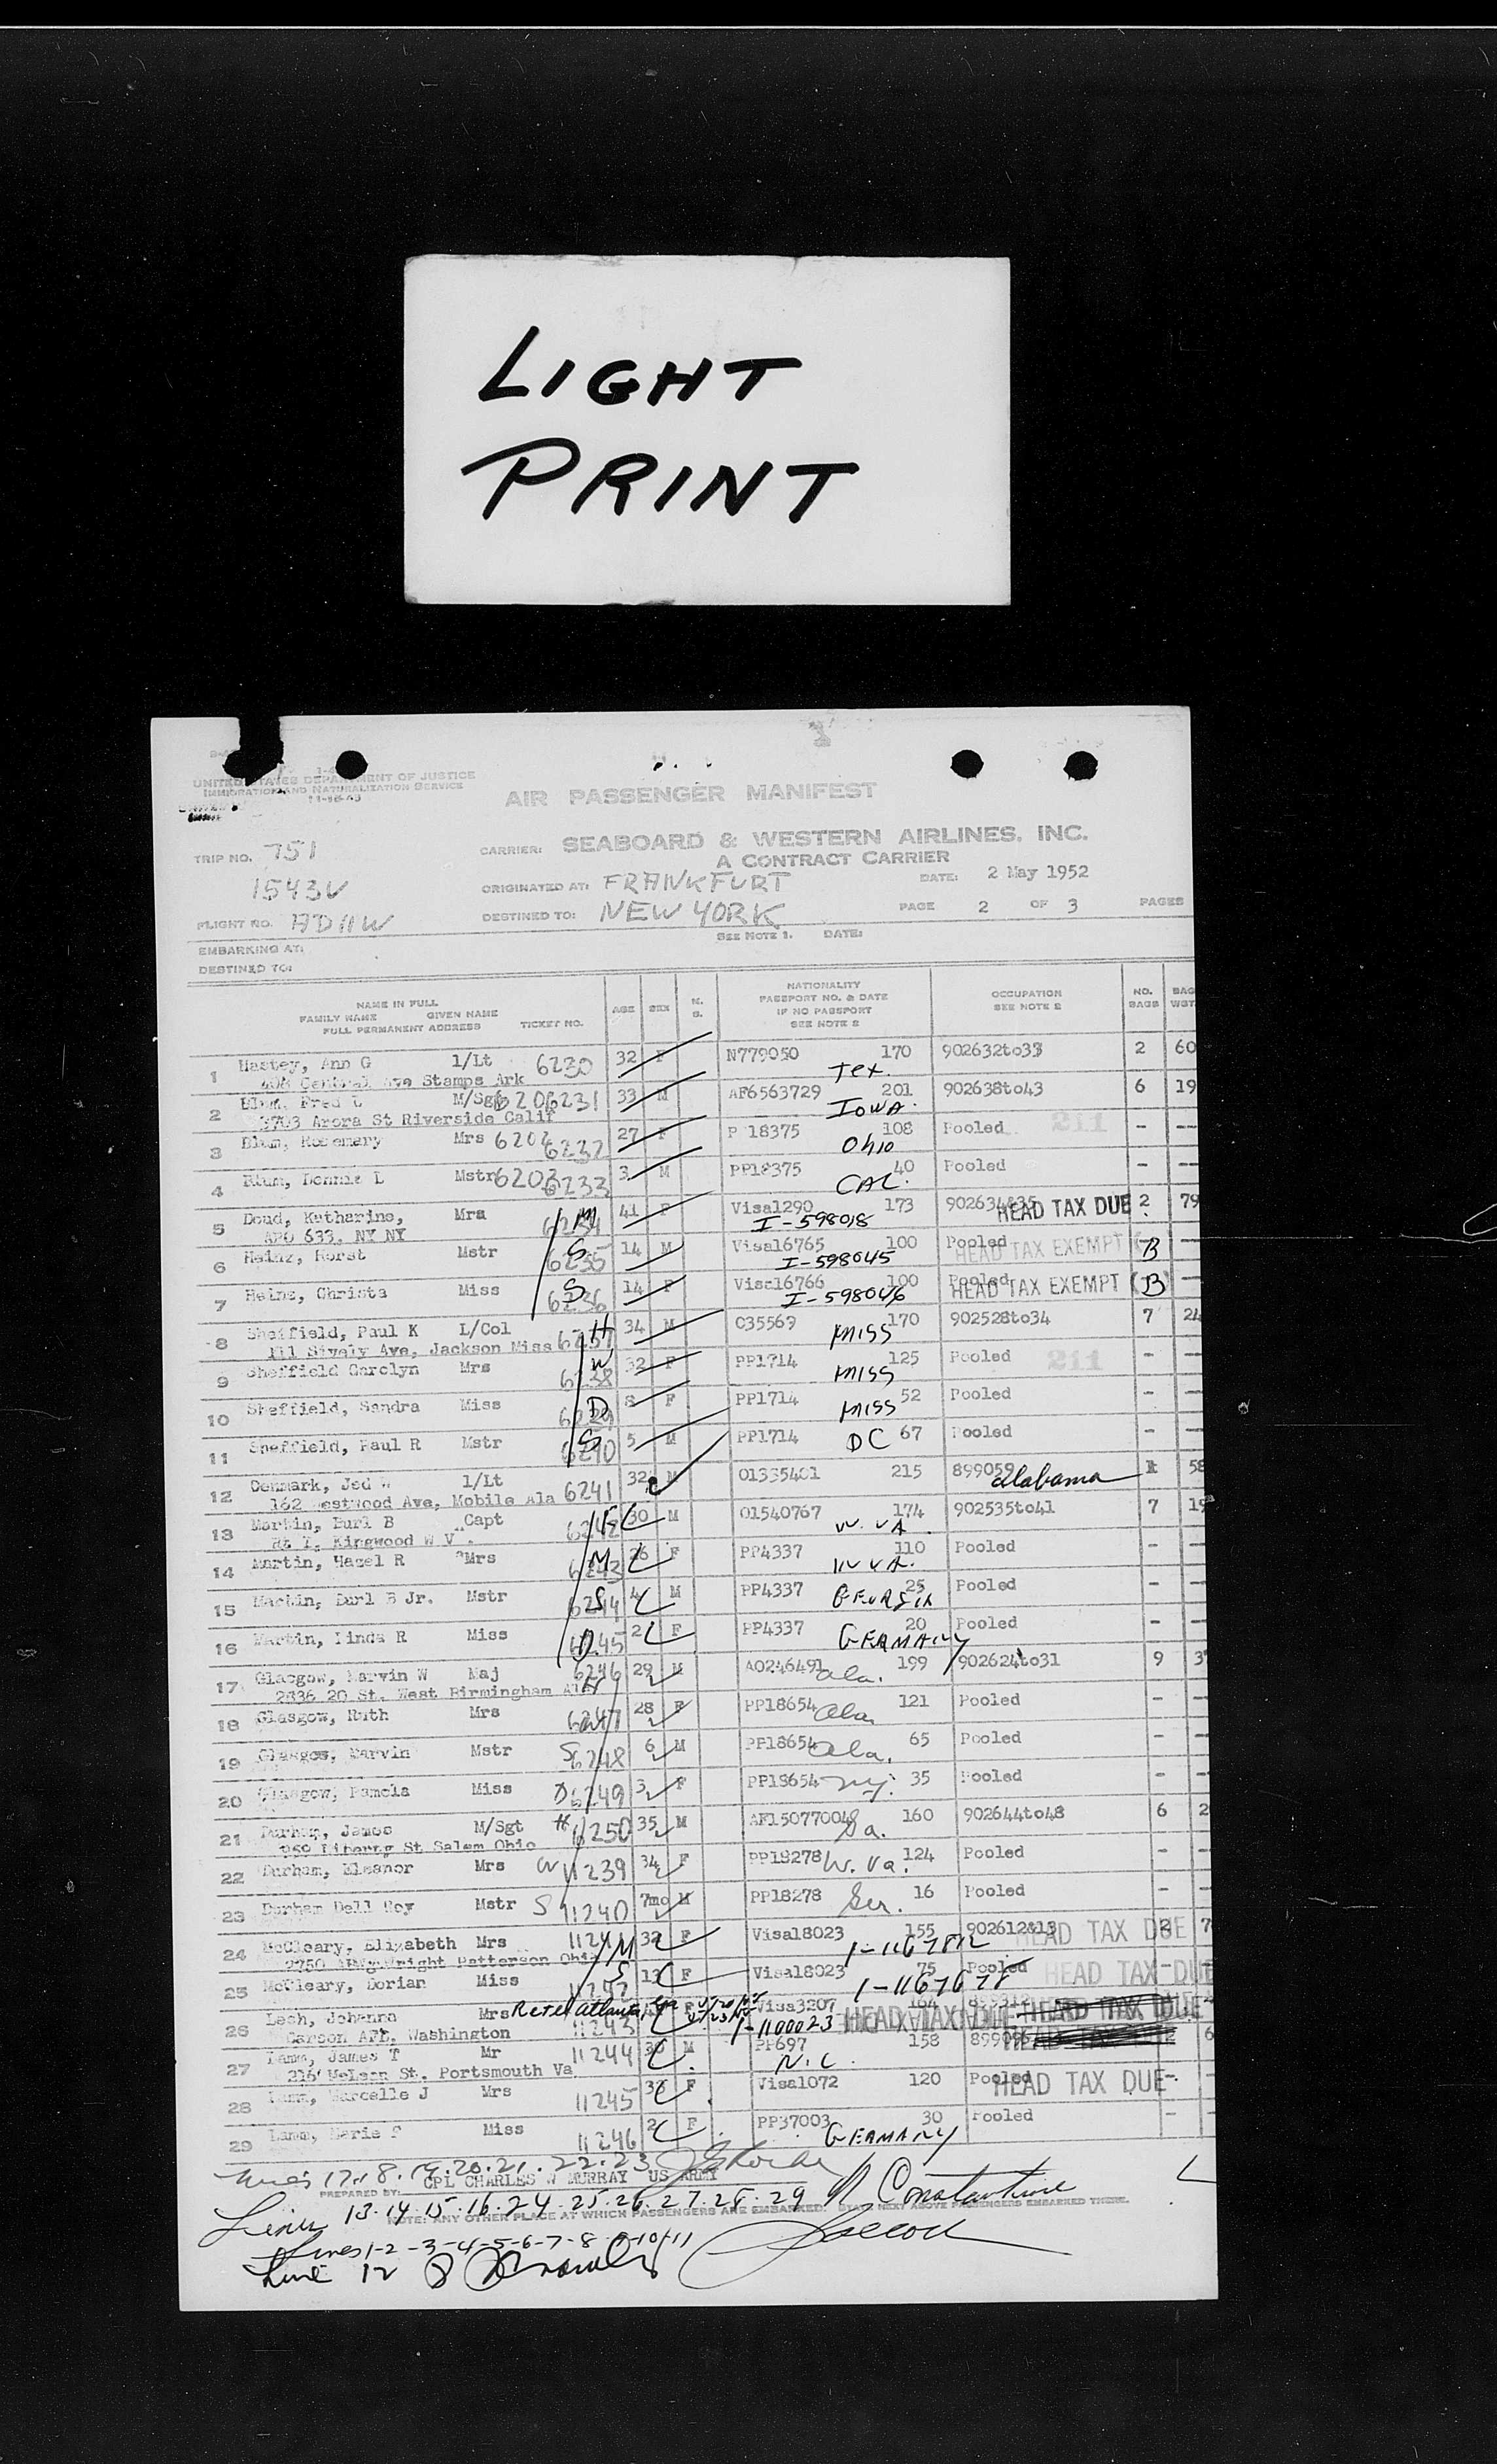 LIGHT
PRINT
UNITED STATES DEPARTMENT OF JUSTICE
IMMIGRATION AND NATURALIZATION SERVICE
11-16-45
AIR PASSENGER MANIFEST
TRIP NO. 751
CARRIER: SEABOARD & WESTERN AIRLINES, INC.
A CONTRACT CARRIER
1543V
ORIGINATED AT: FRANKFURT
DATE: 2 May 1952
FLIGHT NO.
DESTINED TO: NEW YORK
PAGE 2 OF 3 PAGES
SEE NOTE 1. DATE:
EMBARKING AT:
DESTINED TO:
NAME IN FULL
FAMILY NAME GIVEN NAME
FULL PERMANENT ADDRESS TICKET NO.
AGE SEX M. S.
NATIONALITY
PASSPORT NO. & DATE
IF NO PASSPORT
SEE NOTE 2
OCCUPATION
SEE NOTE 2
NO. BAGS
BAG WGT.
1 Hastey, Ann G 1/Lt 6230 32 F N779050 170 Tex. 902632to33 2 60
408 Central Ave Stamps Ark
2 Blum, Fred L M/Sgt 6231 33 M AF6563729 201 IOWA. 902638to43 6 19
2703 Arora St Riverside Calif
3 Blum, Rosemary Mrs 6202 6232 27 F P 18375 108 Ohio Pooled 211 - --
4 Blum, Donnie L Mstr 6203 6233 3 M PP18375 40 CAL. Pooled - --
5 Doud, Katharine, Mrs 6234 M 41 F Visa1290 173 I-598018 902634&35 HEAD TAX DUE 2 79
APO 633, NY NY
6 Heinz, Horst Mstr 6235 S 14 M Visa16765 100 I-598045 Pooled HEAD TAX EXEMPT (B) --
7 Heinz, Christa Miss 6236 S 14 F Visa16766 100 I-598046 Pooled HEAD TAX EXEMPT (B) --
8 Sheffield, Paul K L/Col 6237 H 34 M O35569 170 MISS 902528to34 7 24
111 Sively Ave, Jackson Miss
9 Sheffield Carolyn Mrs 6238 W 32 F PP1714 125 MISS Pooled 211 - --
10 Sheffield, Sandra Miss 6239 D 8 F PP1714 52 MISS Pooled - --
11 Sheffield, Paul R Mstr 6240 S 5 M PP1714 67 DC Pooled - --
12 Denmark, Jed W 1/Lt 6241 32 M O1335401 215 899059 Alabama 1 58
162 Westwood Ave, Mobile Ala
13 Martin, Burl B Capt 6242 30 M O1540767 174 W. VA. 902535to41 7 19
Rt 1, Kingwood W V
14 Martin, Hazel R Mrs 6243 26 F PP4337 110 W VA. Pooled - --
15 Martin, Burl B Jr. Mstr 6244 S 4 M PP4337 25 GEORGIA Pooled - --
16 Martin, Linda R Miss 6245 D 2 F PP4337 20 GERMANY Pooled - --
17 Glasgow, Marvin W Maj 6246 29 M AO246491 199 Ala. 902624to31 9 3
2836 20 St. West Birmingham Ala
18 Glasgow, Ruth Mrs 6247 28 F PP18654 121 Ala. Pooled - --
19 Glasgow, Marvin Mstr S 6248 6 M PP18654 65 Ala. Pooled - --
20 Glasgow, Pamela Miss D 6249 3 F PP18654 35 NJ. Pooled - --
21 Durham, James M/Sgt H 6250 35 M AF15077004 160 902644to48 6 2
Liberty St Salem Ohio
22 Durham, Eleanor Mrs W 11239 34 F PP18278 124 W. Va. Pooled - --
23 Durham Dell Roy Mstr S 11240 7mo M PP18278 16 Ger. Pooled - --
24 McCleary, Elizabeth Mrs 11241 M 32 F Visa18023 155 902612&13 HEAD TAX DUE 2 7
Wright Patterson Ohio
25 McCleary, Dorian Miss 11242 S 13 F Visa18023 75 1-1167678 Pooled HEAD TAX DUE
26 Lesh, Johanna Mrs 11243 F Visa3207 164 1-1100023 HEAD TAX DUE
Carson AFB, Washington
27 Lamm, James T Mr 11244 30 M PP697 158 N.C. 6
McLean St. Portsmouth Va
28 Lamm, Marcelle J Mrs 11245 F Visa1072 120 Pooled HEAD TAX DUE
29 Lamm, Marie F Miss 11246 2 F PP37003 30 GERMANY Pooled - -
Lines 17.18.19.20.21.22.23
PREPARED BY: CPL CHARLES W MURRAY US ARMY
Lines 13.14.15.16.24.25.26.27.28.29 Constantine
NOTE: ANY OTHER PLACE AT WHICH PASSENGERS ARE EMBARKED. STATE NEXT ABOVE PASSENGERS EMBARKED THERE.
Lines 1-2-3-4-5-6-7-8-9-10-11
Line 12